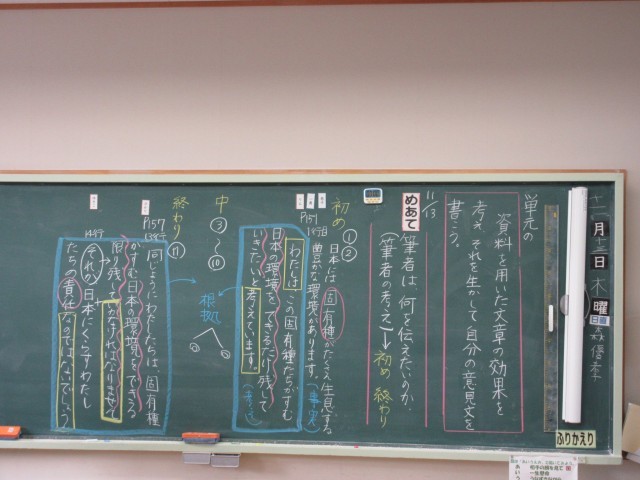 十一月十三日 木曜
日直
単元の
資料を用いた文章の効果を
考え、それを生かして自分の意見文を
書こう。
11/13
めあて
筆者は、何を伝えたいのか。
(筆者の考え)→初め 終わり
初め
①
②
日本には、固有種がたくさん生息する
豊かな環境があります。(事実)
P151
わたしは、この固有種たちがすむ
日本の環境を、できるだけ残して
いきたいと考えています。
中
③
〜
⑩
根拠
終わり
⑪
P157
同じようにわたしたちは、固有種
がすむ日本の環境をできる
限り残していかなければなりません。
それが、日本にくらすわたし
たちの責任なのではないでしょうか
ふりかえり